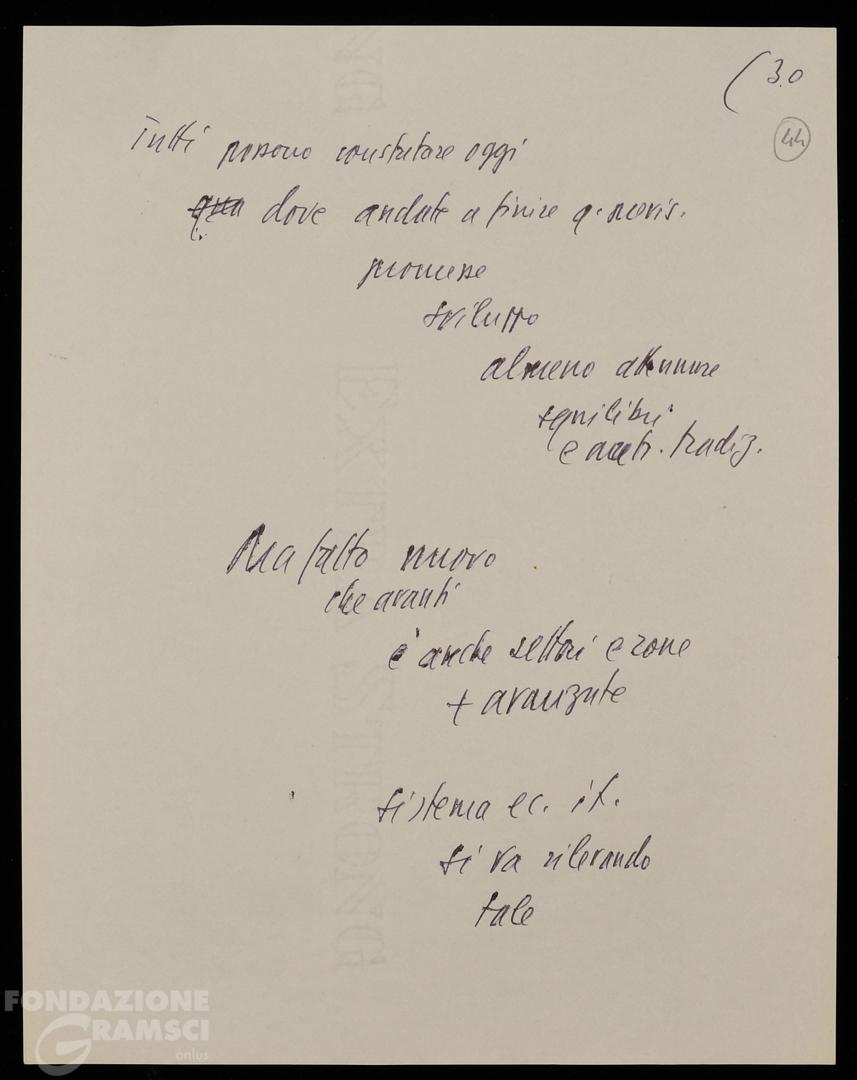 (30
44
Tutti possono constatare oggi
dove andate a finire q. previs.
promesse
sviluppo
almeno attenuare
squilibri
e arretr. tradiz.
Ma fatto nuovo
che avanti
è anche settori e zone
+ avanzate
sistema ec. it.
si va rilevando
tale
FONDAZIONE
GRAMSCI
onlus